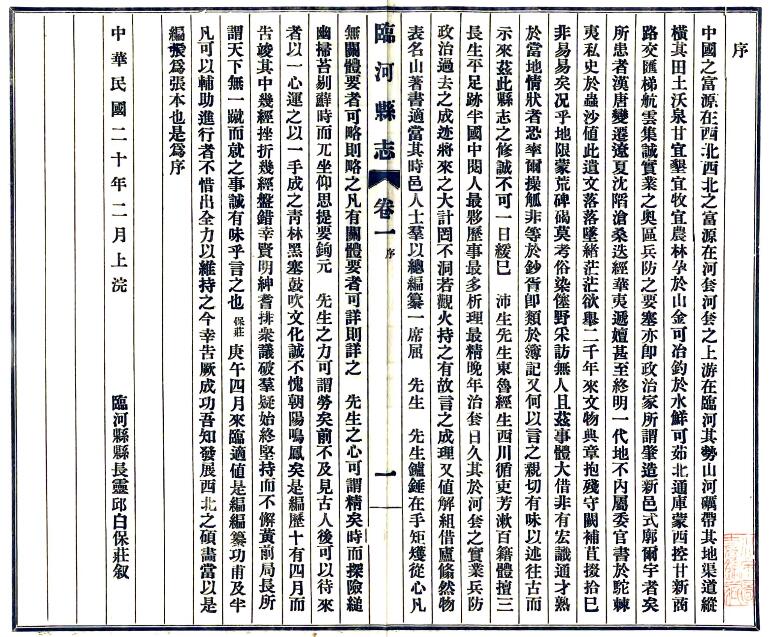 序
中國之富源在西北西北之富源在河套河套之上游在臨河其勢山河礪帶其地渠道縱
橫其田土沃泉甘宜墾宜牧宜農林孕於山金可冶鈞於水鮮可茹北通庫蒙西控甘新商
路交匯梯航雲集誠實業之奧區兵防之要塞亦即政治家所謂肇造新邑式廓爾宇者矣
所患者漢唐變遷遼夏沈陷滄桑迭經華夷遞嬗甚至終明一代地不內屬委官書於駝棘
夷私史於蟲沙値此遺文落落墜緒茫茫欲舉二千年來文物典章抱殘守闕補苴掇拾巳
非易易矣況乎地限蒙荒碑碣莫考俗染傖野采訪無人且茲事體大借非有宏識通才熟
於當地情狀者恐率爾操觚非等於鈔胥卽類於簿記又何以言之親切有味以述往古而
示來茲此縣志之修誠不可一日緩巳 沛生先生東魯經生西川循吏芳漱百籍體擅三
長生平足跡半國中閱人最夥歷事最多析理最精晚年治套日久其於河套之實業兵防
政治過去之成迹將來之大計罔不洞若觀火持之有故言之成理又値解組借廬翛然物
表名山著書適當其時邑人士羣以總編纂一席屈 先生 先生鑪錘在手矩矱從心凡
臨河縣志 卷一 序 一
無關體要者可略則略之凡有關體要者可詳則詳之 先生之心可謂精矣時而探險縋
幽掃苔剔蘚時而兀坐仰思提要鉤元 先生之力可謂勞矣前不及見古人後可以待來
者以一心運之以一手成之靑林黑塞鼓吹文化誠不愧朝陽鳴鳳矣是編歷十有四月而
吿竣其中幾經挫折幾經盤錯幸賢明紳耆排衆議破羣疑始終堅持而不懈黃前局長所
謂天下無一蹴而就之事誠有味乎言之也保莊庚午四月來臨適値是編編纂功甫及半
凡可以輔助進行者不惜出全力以維持之今幸吿厥成功吾知發展西北之碩畫當以是
編爲張本也是爲序
中華民國二十年二月上浣
臨河縣縣長靈邱白保莊叙